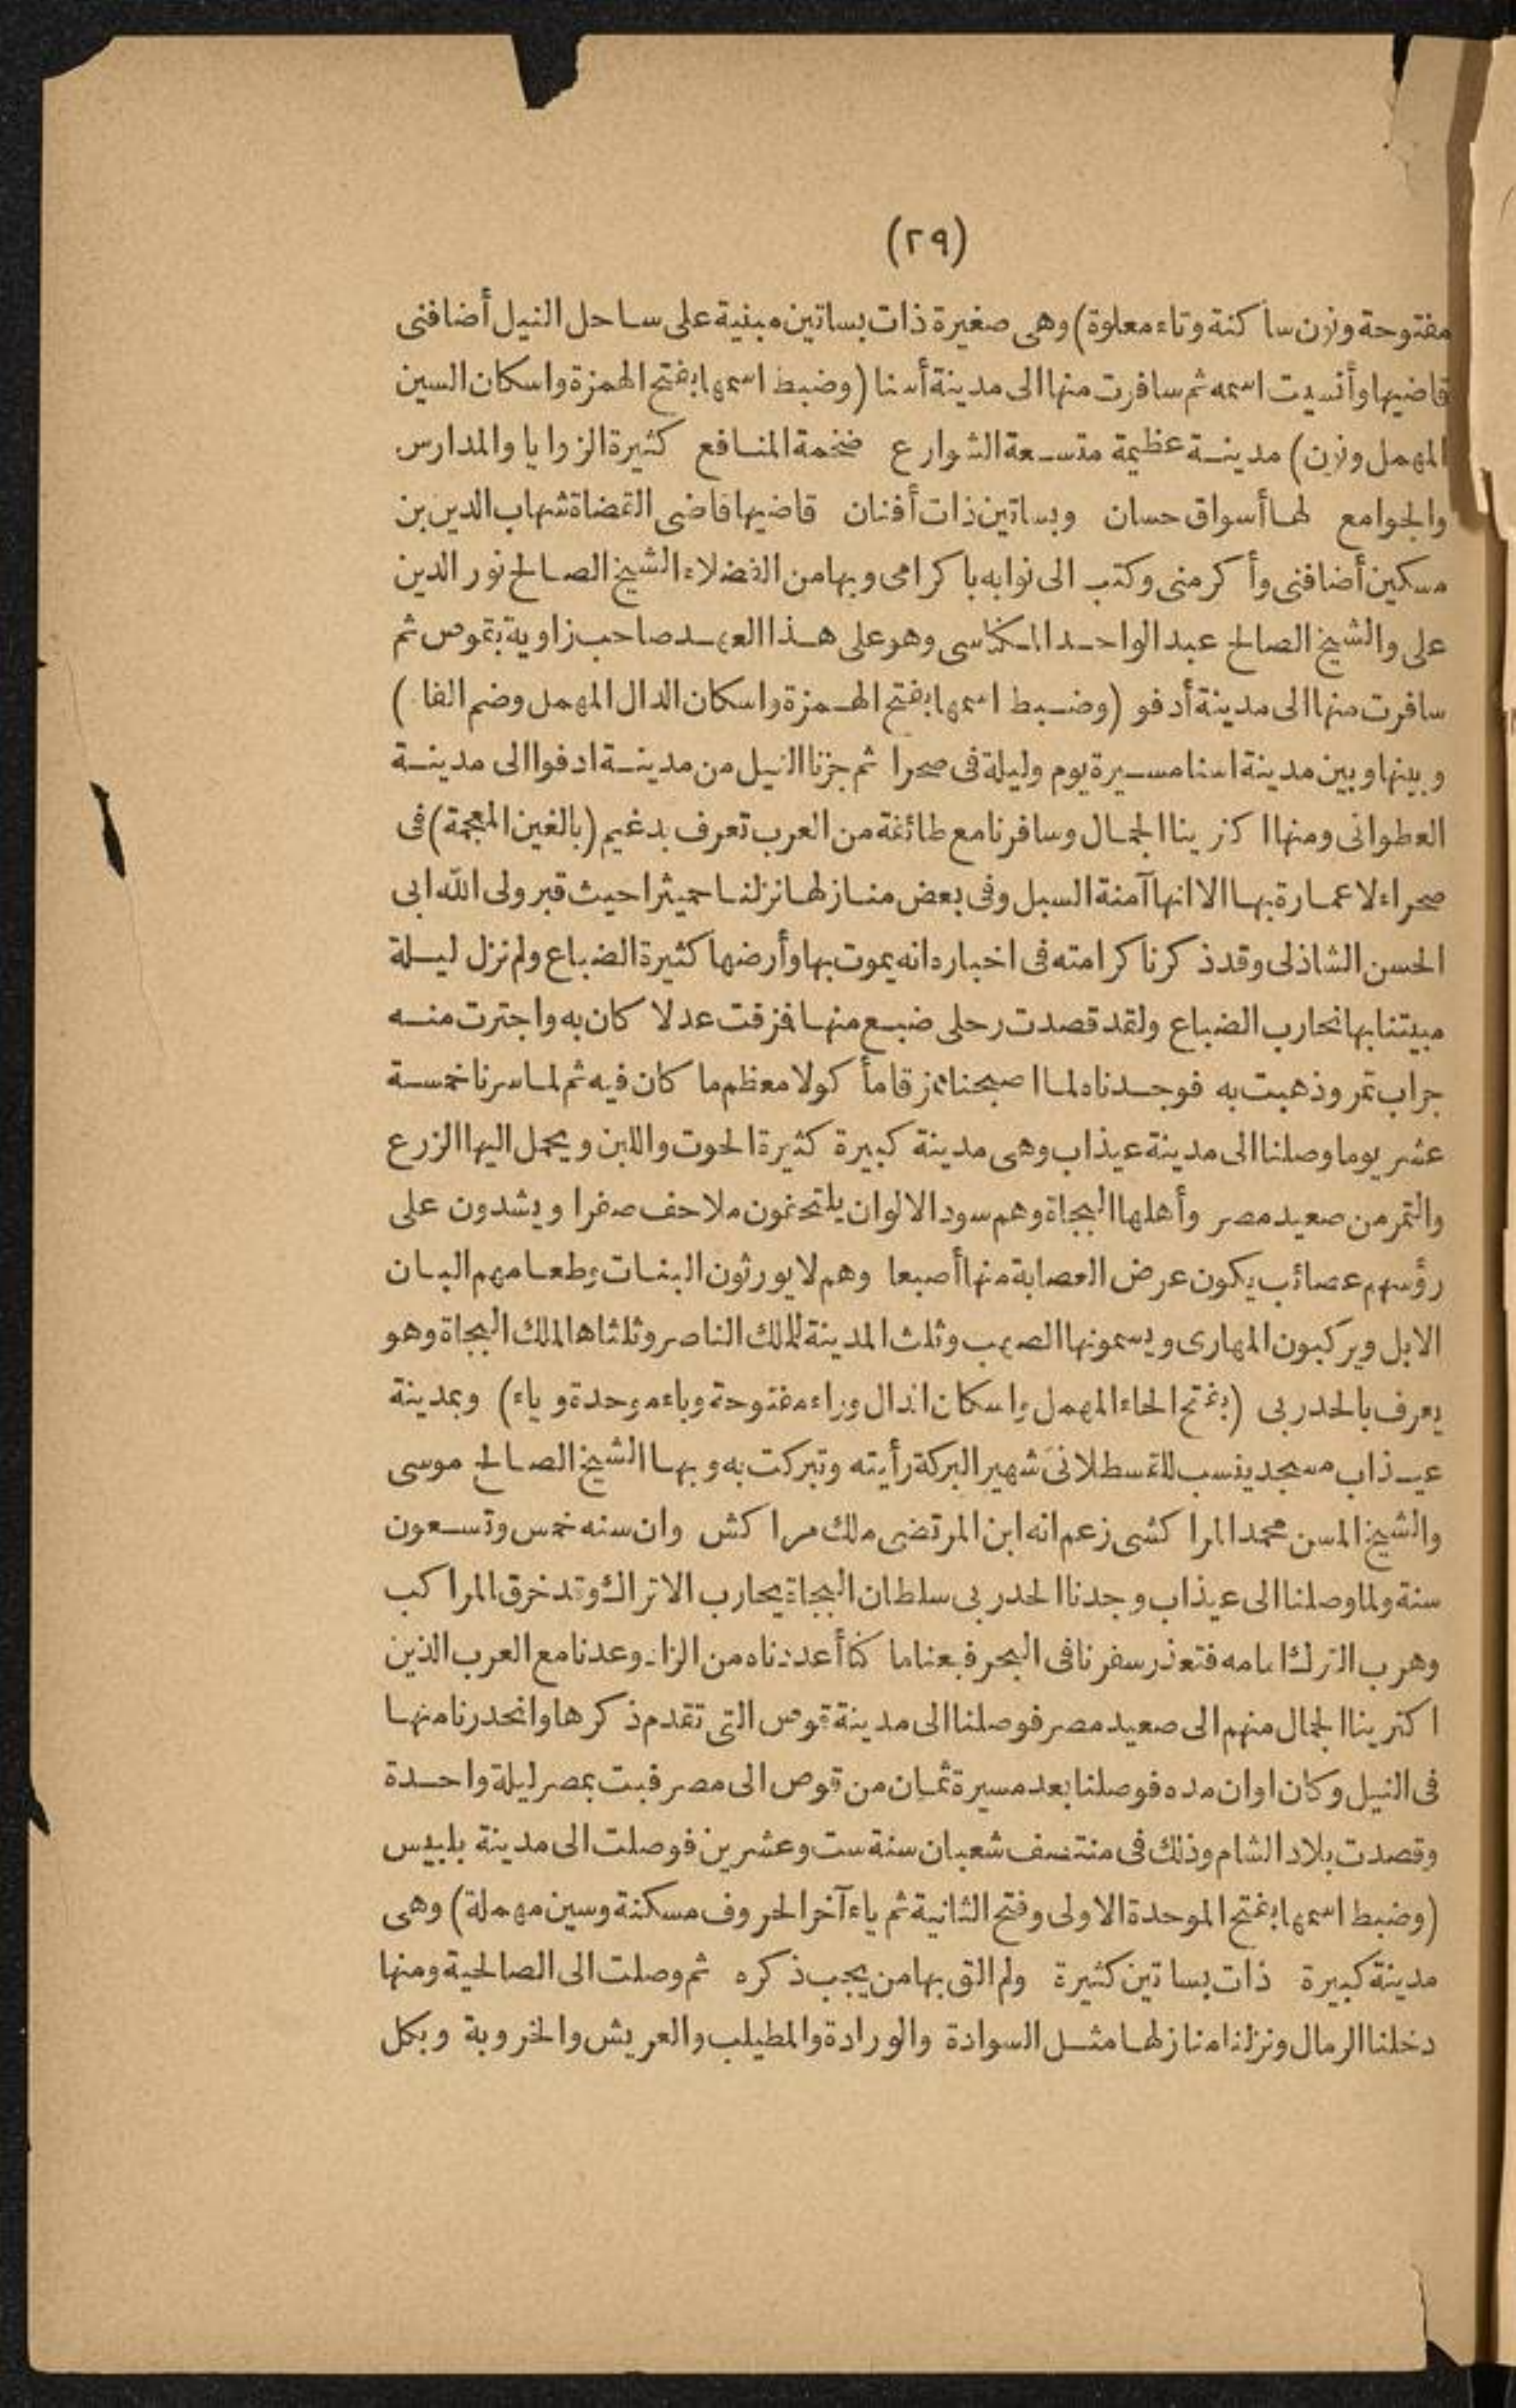 (٢٩)
مفتوحة ونون ساكنة وتاء معلوة) وهى صغيرة ذات بساتين مبنية على ساحل النيل أضافنى
قاضيها وأنسيت اسمه ثم سافرت منها الى مدينة أسنا (وضبط اسمها بفتح الهمزة واسكان السين
المهمل ونون) مدينة عظيمة متسعة الشوارع ضخمة المنافع كثيرة الزوايا والمدارس
والجوامع لها أسواق حسان وبساتين ذات أفنان قاضيها قاضى القضاة شهاب الدين بن
مسكين أضافنى وأكرمنى وكتب الى نوابه باكرامى وبها من الفضلاء الشيخ الصالح نور الدين
على والشيخ الصالح عبد الواحد المكناسى وهو على هذا العهد صاحب زاوية بقوص ثم
سافرت منها الى مدينة أدفو (وضبط اسمها بفتح الهمزة واسكان الدال المهمل وضم الفا )
وبينها وبين مدينة اسنا مسيرة يوم وليلة فى صحرا ثم جزنا النيل من مدينة ادفوا الى مدينة
العطوانى ومنها اكترينا الجمال وسافرنا مع طائفة من العرب تعرف بدغيم (بالغين المعجمة) فى
صحراء لا عمارة بها الا انها آمنة السبل وفى بعض منازلها نزلنا حميثرا حيث قبر ولى الله ابى
الحسن الشاذلى وقد ذكرنا كرامته فى اخباره انه يموت بها وأرضها كثيرة الضباع ولم نزل ليلة
مبيتنا بها نحارب الضباع ولقد قصدت رحلى ضبع منها فمزقت عدلا كان به واجترت منه
جراب تمر وذهبت به فوجدناه لما اصبحنا ممزقا مأكولا معظم ما كان فيه ثم لما سرنا خمسة
عشر يوما وصلنا الى مدينة عيذاب وهى مدينة كبيرة كثيرة الحوت واللبن ويحمل اليها الزرع
والتمر من صعيد مصر وأهلها البجاة وهم سود الالوان يلتحفون ملاحف صفرا ويشدون على
رؤسهم عصائب يكون عرض العصابة منها أصبعا وهم لا يورثون البنات وطعامهم البان
الابل ويركبون المهارى ويسمونها الصهب وثلث المدينة للملك الناصر وثلثاها الملك البجاة وهو
يعرف بالحدربى (بفتح الحاء المهمل واسكان الدال وراء مفتوحة وباء موحدة وياء) وبمدينة
عيذاب مسجد ينسب للقسطلانى شهير البركة رأيته وتبركت به وبها الشيخ الصالح موسى
والشيخ المسن محمد المراكشى زعم انه ابن المرتضى ملك مراكش وان سنه خمس وتسعون
سنة ولما وصلنا الى عيذاب وجدنا الحدربى سلطان البجاة يحارب الاتراك وقد خرق المراكب
وهرب الترك امامه فتعذر سفرنا فى البحر فبعنا ما كنا أعددناه من الزاد وعدنا مع العرب الذين
اكترينا الجمال منهم الى صعيد مصر فوصلنا الى مدينة قوص التى تقدم ذكرها وانحدرنا منها
فى النيل وكان اوان مده فوصلنا بعد مسيرة ثمان من قوص الى مصر فبت بمصر ليلة واحدة
وقصدت بلاد الشام وذلك فى منتصف شعبان سنة ست وعشرين فوصلت الى مدينة بلبيس
(وضبط اسمها بفتح الموحدة الاولى وفتح الثانية ثم ياء آخر الحروف مسكنة وسين مهملة) وهى
مدينة كبيرة ذات بساتين كثيرة ولم الق بها من يجب ذكره ثم وصلت الى الصالحية ومنها
دخلنا الرمال ونزلنا منازلها مثل السوادة والورادة والمطيلب والعريش والخروبة وبكل